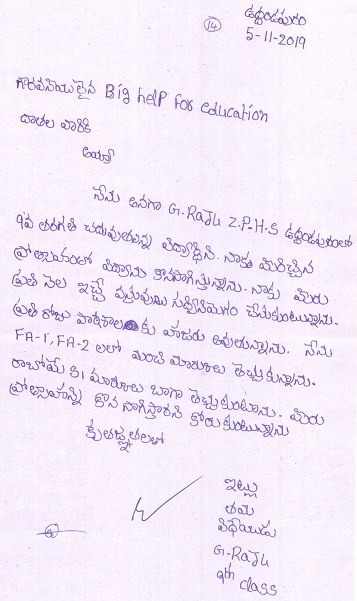 14
ఉద్దండపురం
5-11-2019
గౌరవనీయులైన Big help for education
దాతల వారికి
అయ్యా
నేను అనగా G.RaJu Z.P.H.S ఉద్దండపురంలో
9వ తరగతి చదువుతున్న విద్యార్థిని. నాకు మీరిచ్చిన
ప్రోత్సాహంతో విద్యను కొనసాగిస్తున్నాను. నాకు మీరు
ప్రతి నెల ఇచ్చే వస్తువులు సద్వినియోగం చేసుకుంటున్నాను.
ప్రతి రోజు పాఠశాలకు హాజరు అవుతున్నాను. నేను
FA-1, FA-2 లలో మంచి మార్కులు తెచ్చుకున్నాను.
రాబోయే S1 మార్కులు బాగా తెచ్చుకుంటాను. మీరు
ప్రోత్సాహాన్ని కొనసాగిస్తారని కోరుకుంటున్నాను
కృతజ్ఞతలతో
ఇట్లు
తమ
విధేయుడు
G-RaJu
9th class